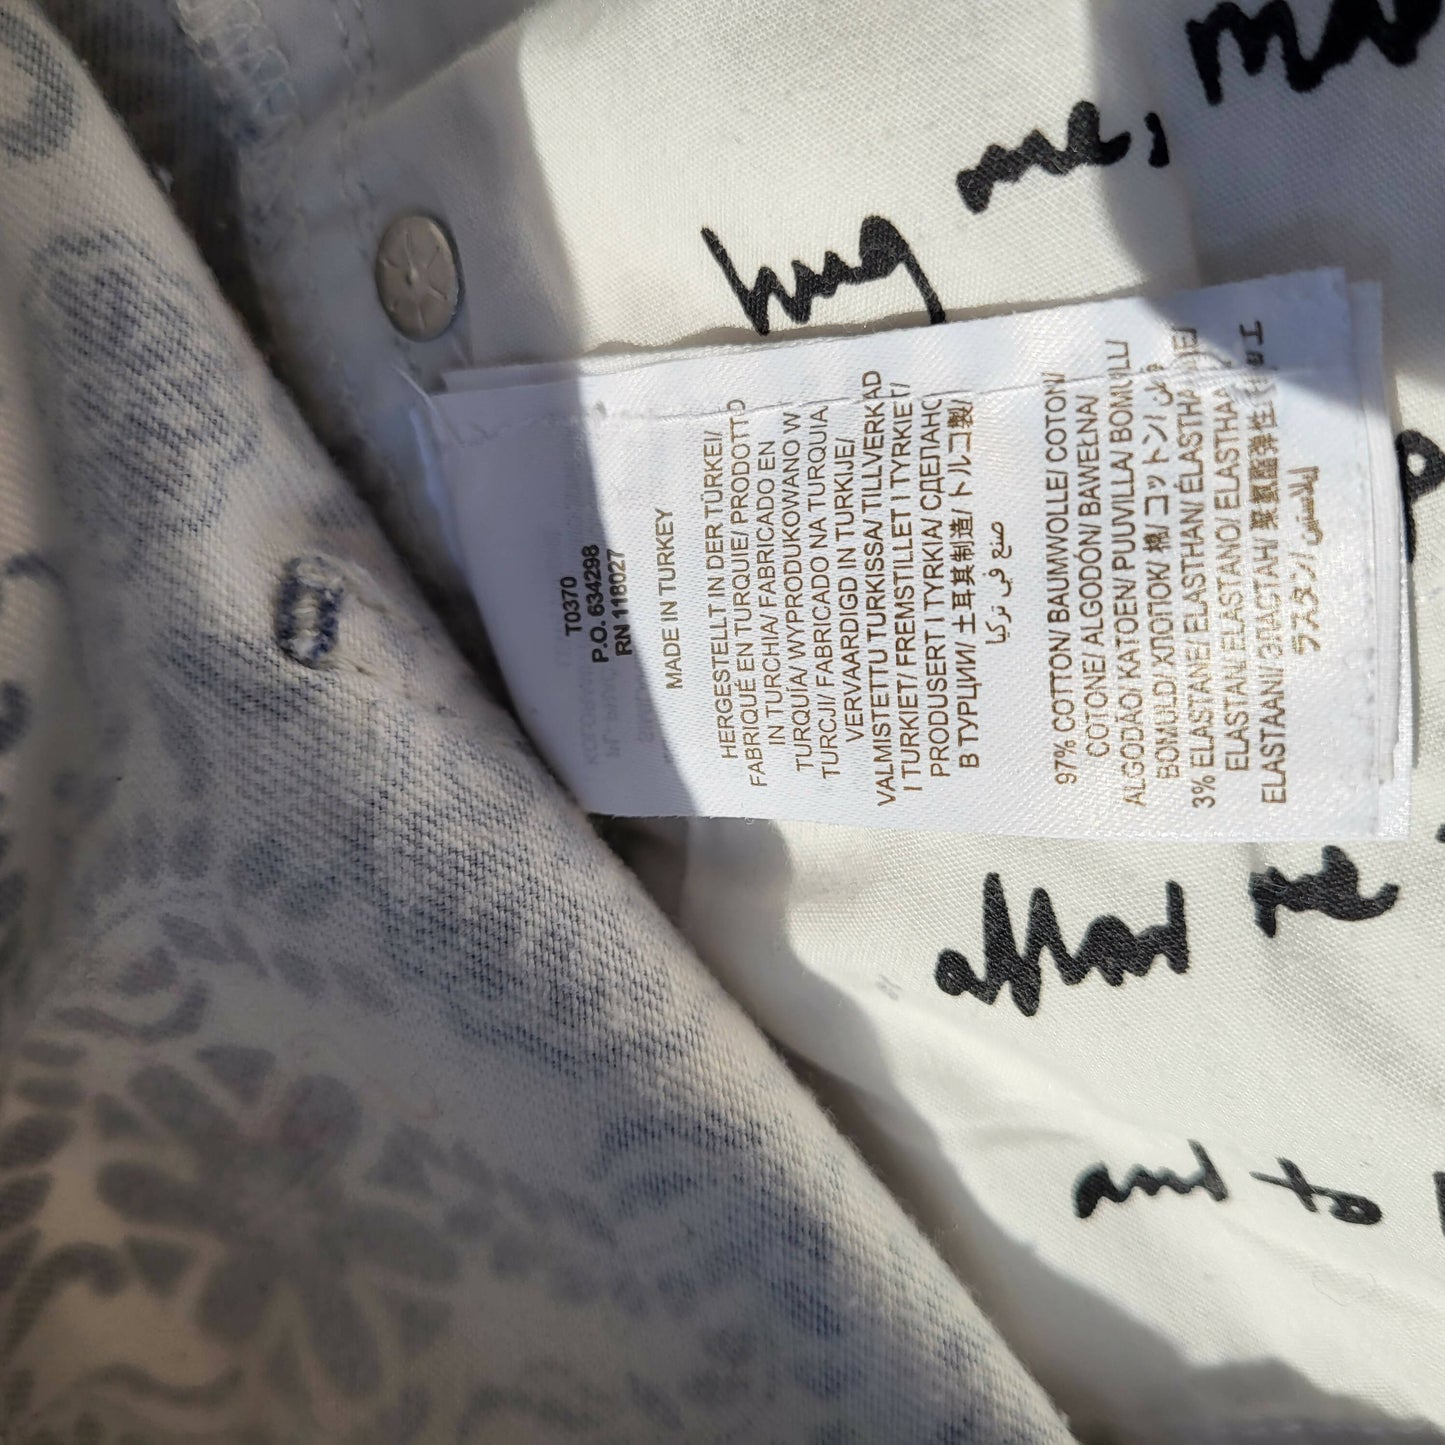 T0370
P.O. 634298
RN 118027
MADE IN TURKEY
HERGESTELLT IN DER TÜRKEI/
FABRIQUÉ EN TURQUIE/ PRODOTTO
IN TURCHIA/ FABRICADO EN
TURQUÍA/ WYPRODUKOWANO W
TURCJI/ FABRICADO NA TURQUIA/
VERVAARDIGD IN TURKIJE/
VALMISTETTU TURKISSA/ TILLVERKAD
I TURKIET/ FREMSTILLET I TYRKIET/
PRODUSERT I TYRKIA/ СДЕЛАНО
В ТУРЦИИ/ 土耳其制造/ トルコ製/
صنع في تركيا
97% COTTON/ BAUMWOLLE/ COTON/
COTONE/ ALGODÓN/ BAWEŁNA/
ALGODÃO/ KATOEN/ PUUVILLA/ BOMULL/
BOMULD/ ХЛОПОК/ 棉/ コットン/ قطن
3% ELASTANE/ ELASTHAN/ ÉLASTHANNE/
ELASTAN/ ELASTANO/ ELASTHAAN/
ELASTAANI/ ЭЛАСТАН/
ラスタン/ إيلاستين
hug me,
and to